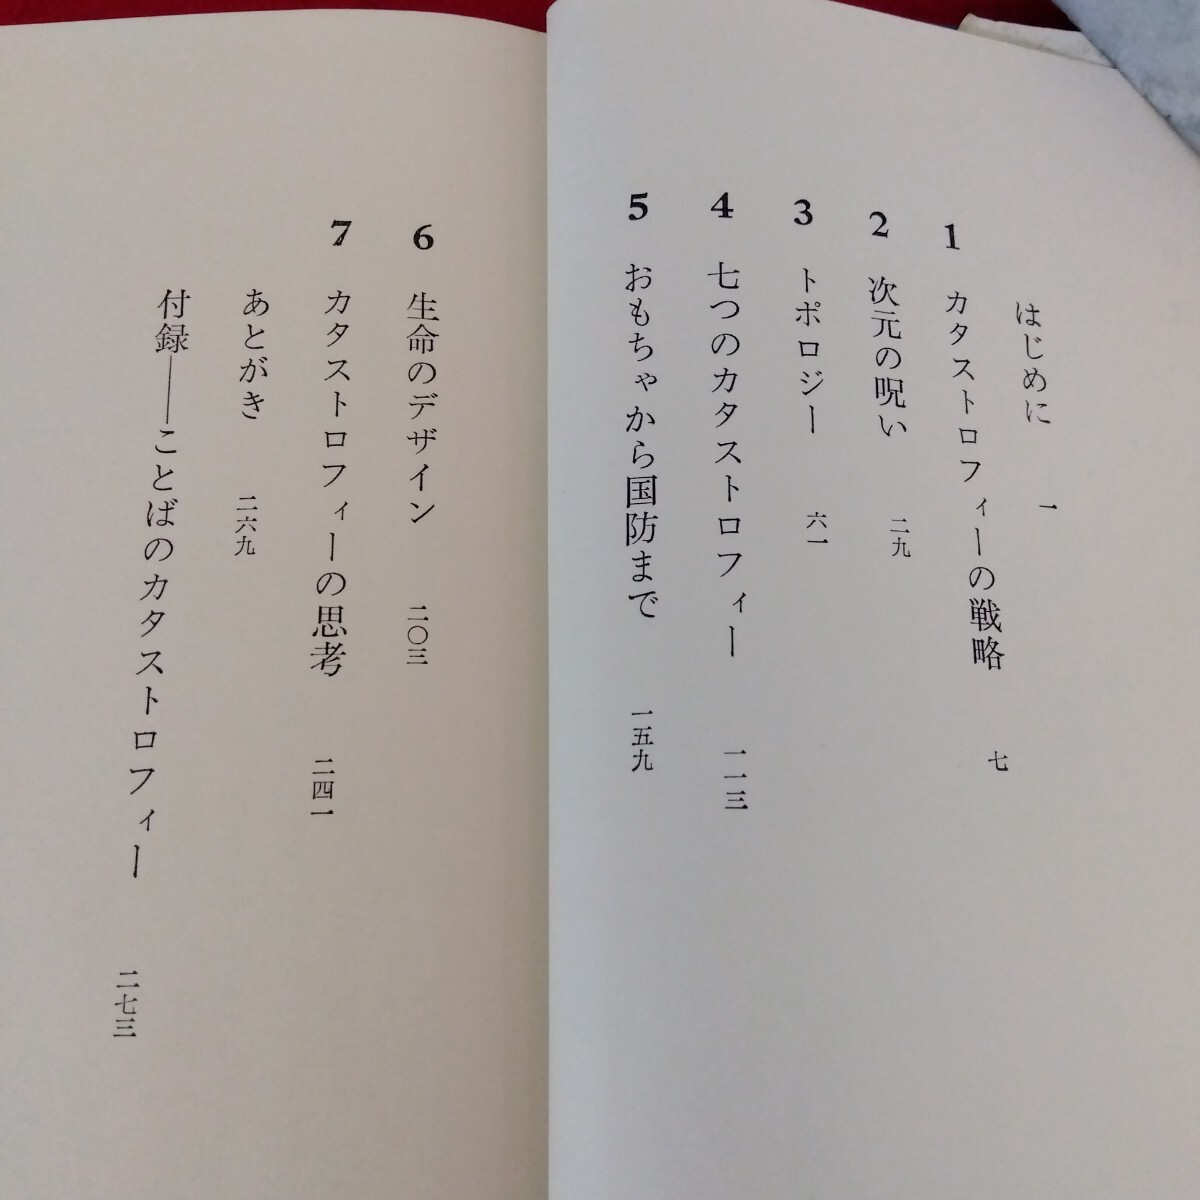 はじめに 一
1 カタストロフィーの戦略 七
2 次元の呪い 二九
3 トポロジー 六一
4 七つのカタストロフィー 一一三
5 おもちゃから国防まで 一五九
6 生命のデザイン 二〇三
7 カタストロフィーの思考 二四一
あとがき 二六九
付録――ことばのカタストロフィー 二七三